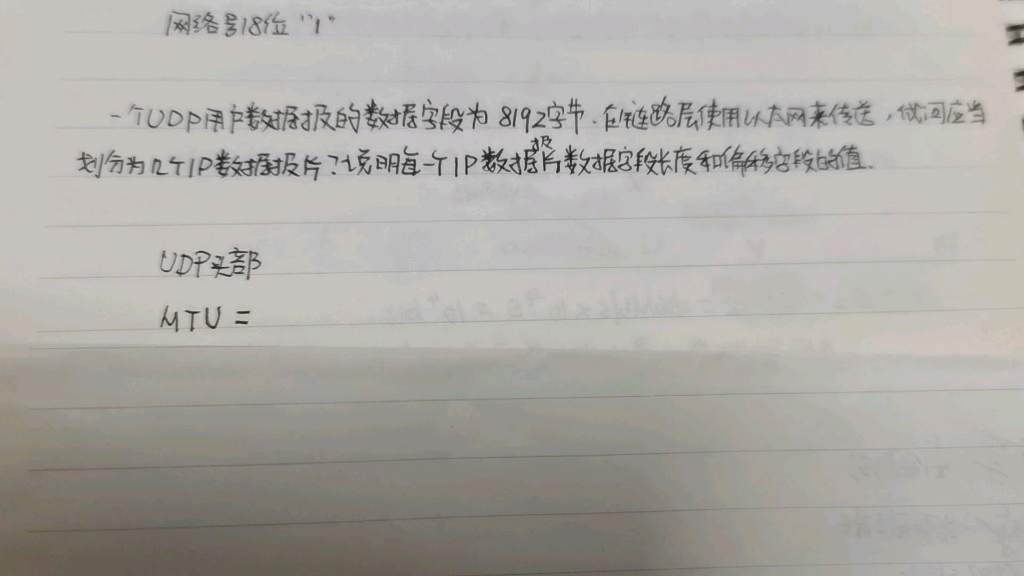 网络号18位 "1"
一个UDP用户数据报的数据字段为8192字节.在链路层使用以太网来传送,做问应当
划分为几个IP数据报片?说明每一个IP数据报片数据字段长度和偏移字段的值.
UDP头部
MTU =